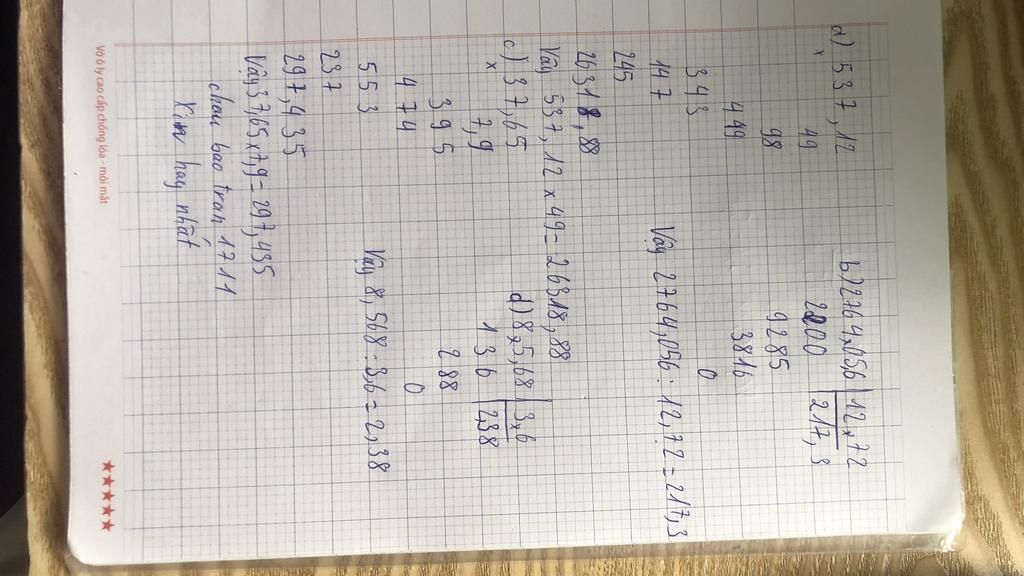 a) 537,12
x
49
98
449
343
147
245
26318,88
Vậy 537,12 x 49 = 26318,88
b) 2764x05,6 | 12x72
2200 217,3
9285
3816
0
Vậy 2764,056 : 12,72 = 217,3
c) 37,65
x
7,9
395
474
553
237
297,435
Vậy 37,65 x 7,9 = 297,435
d) 8x5,68 | 3x6
136 2,38
288
0
Vậy 8,568 : 3,6 = 2,38
chau bao tran 1711
Xin hay nhất
Vở ô ly cao cấp chống lóa - mỏi mắt